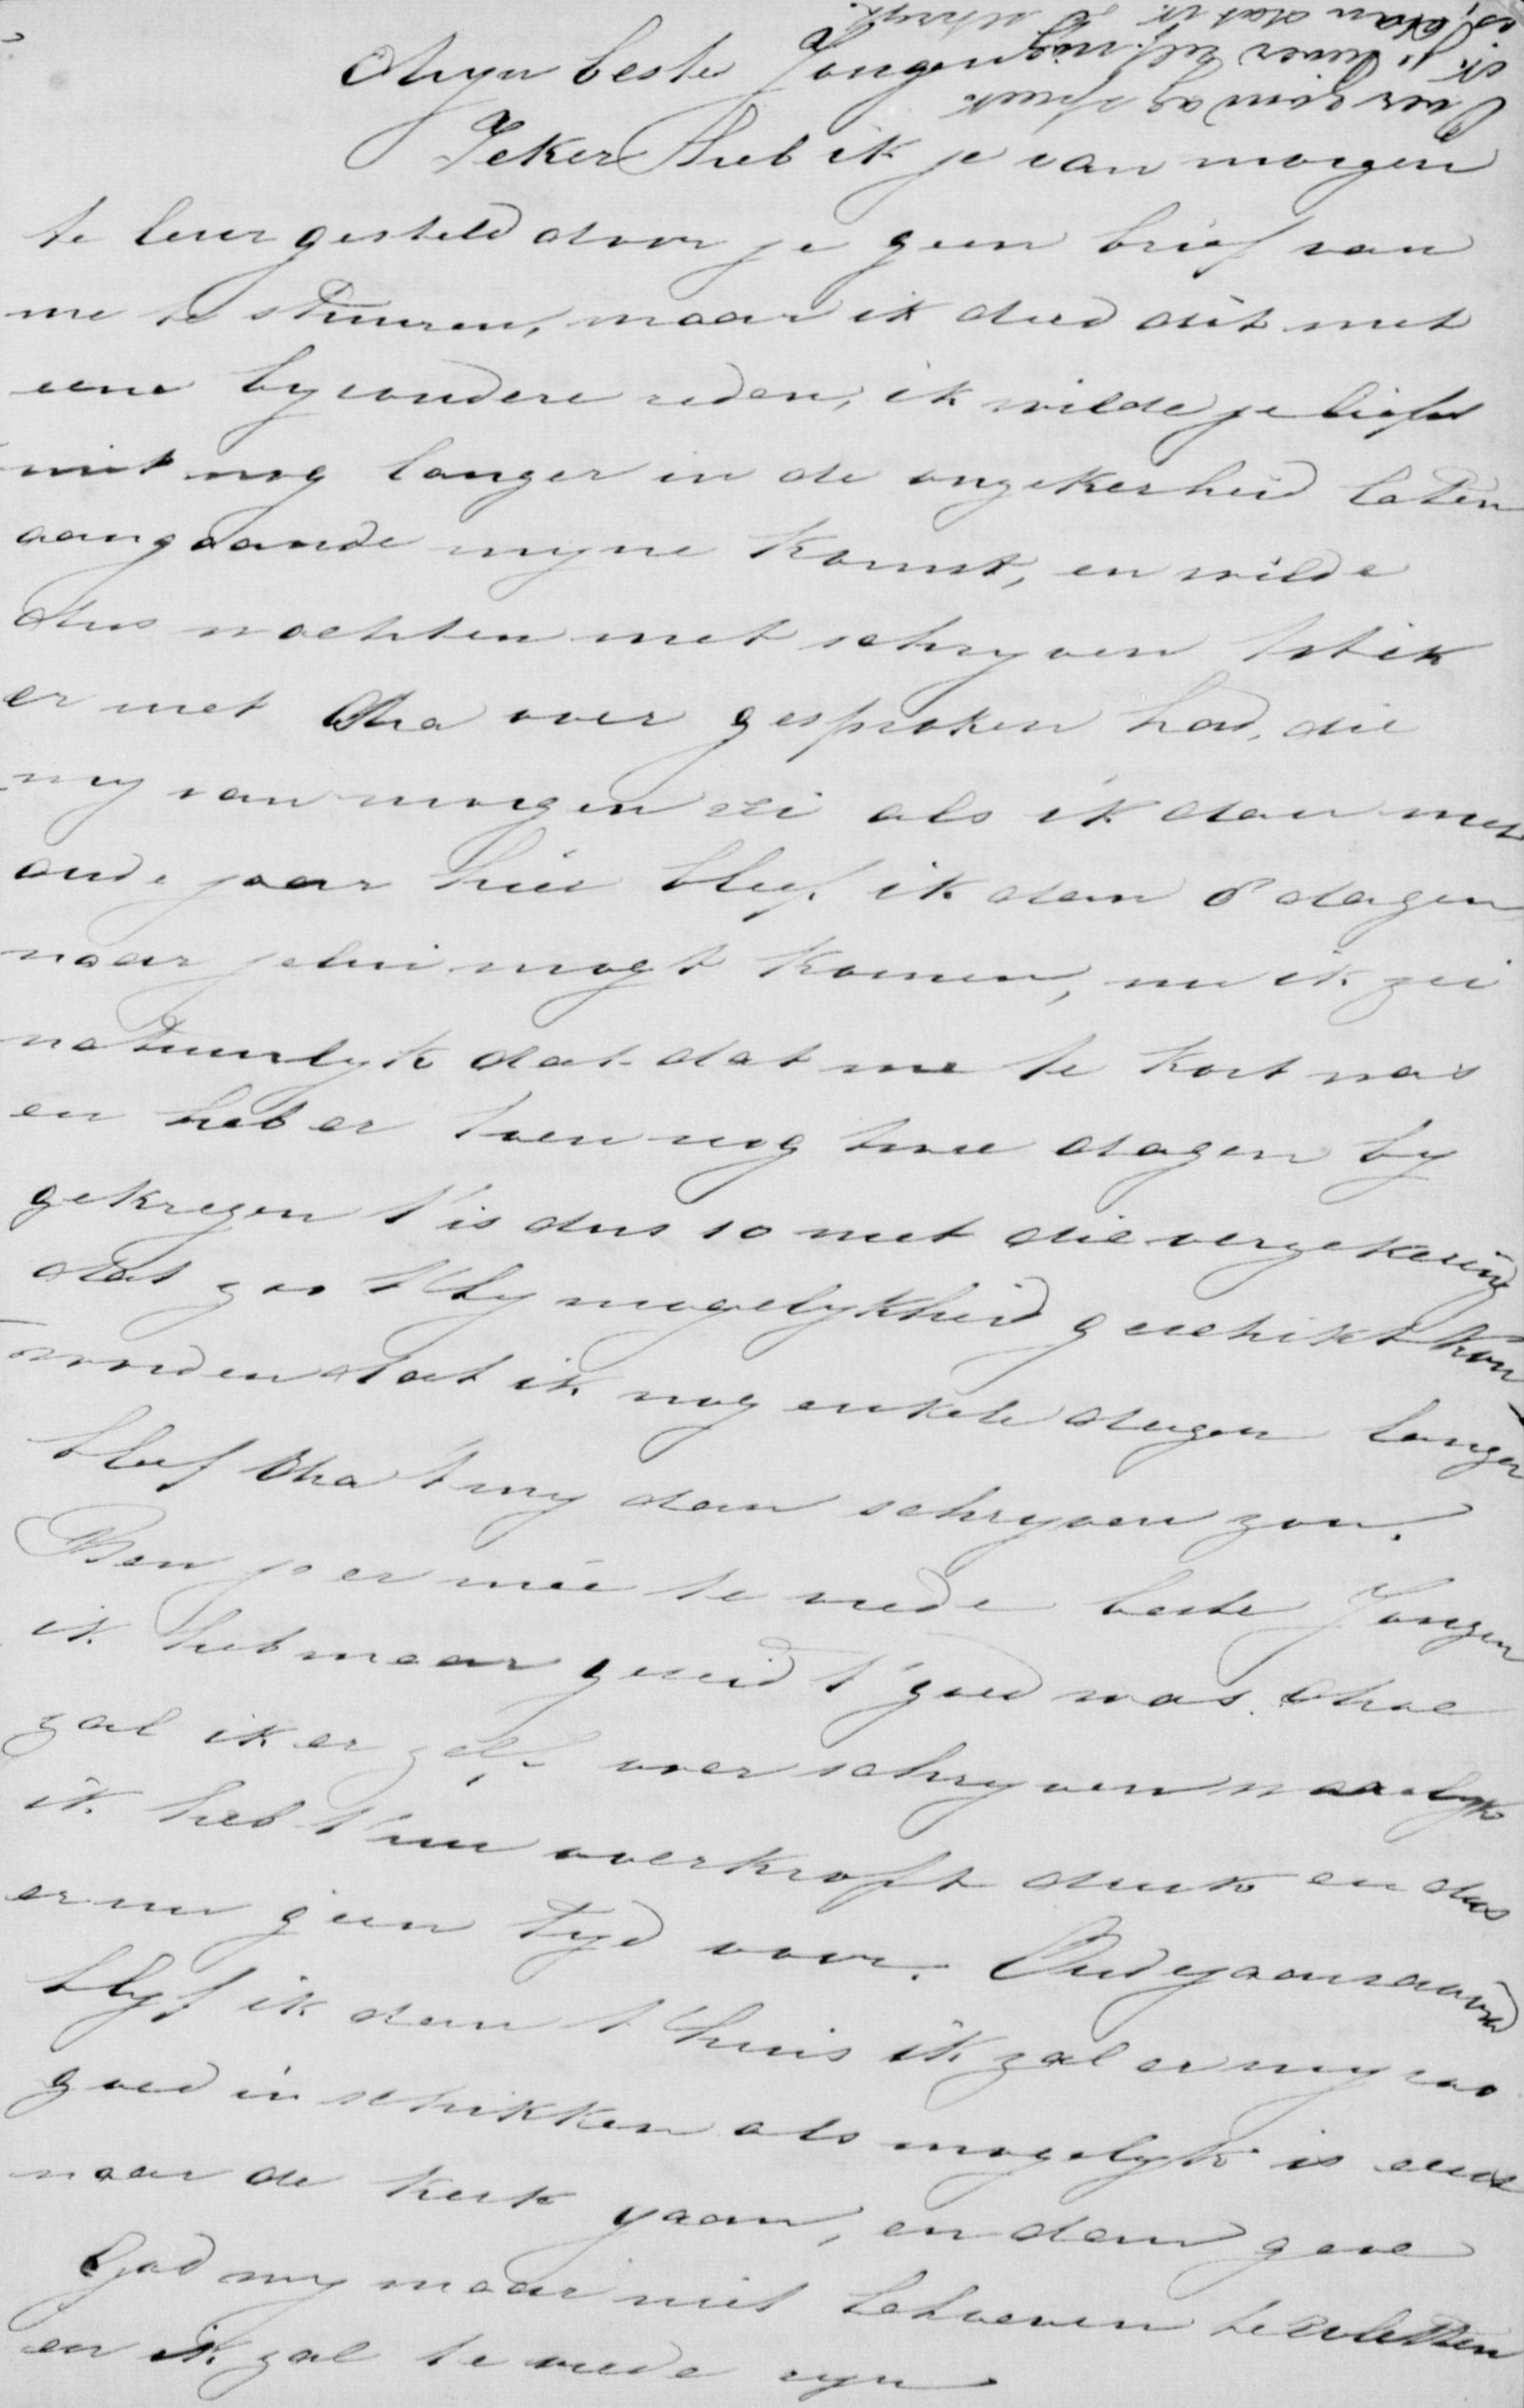 Mijn beste Jongen
Zeker heb ik je van morgen
te leur gesteld door je geen brief van
me te sturen, maar ik deed dit met
eene byzondere reden, ik wilde je liefst
niet nog langer in de onzekerheid laten
aangaande myne komst, en wilde
dus wachten met schryven tot ik
er met Ma over gesproken had, die
my van morgen zei als ik dan met
oude jaar hier bleef ik dan 8 dagen
naar jelui mogt komen, nu ik zei
natuurlyk dat dat me te kort was
en heb er toen nog twee dagen by
gekregen t is dus 10 met die verzekering
dat zoo t by mogelykheid geschikt kon
worden dat ik nog enkele dagen langer
bleef Ma t my dan schryven zou.
Ben je er mee te vrede beste Jongen
ik heb maar gezeid t goed was.
zal ik er zelf over schryven
ik heb t nu druk en dus
er nu geen tyd voor. Oudejaarsavond
blyf ik dan t huis ik zal er my zoo
goed in schikken als mogelyk is eens
naar de kerk gaan, en dan geve
God my maar niet behoeven te
en ik zal te vrede zyn
Over Zondag spreek
ik je liever zelf nog
es, dan dat ik je schryf.